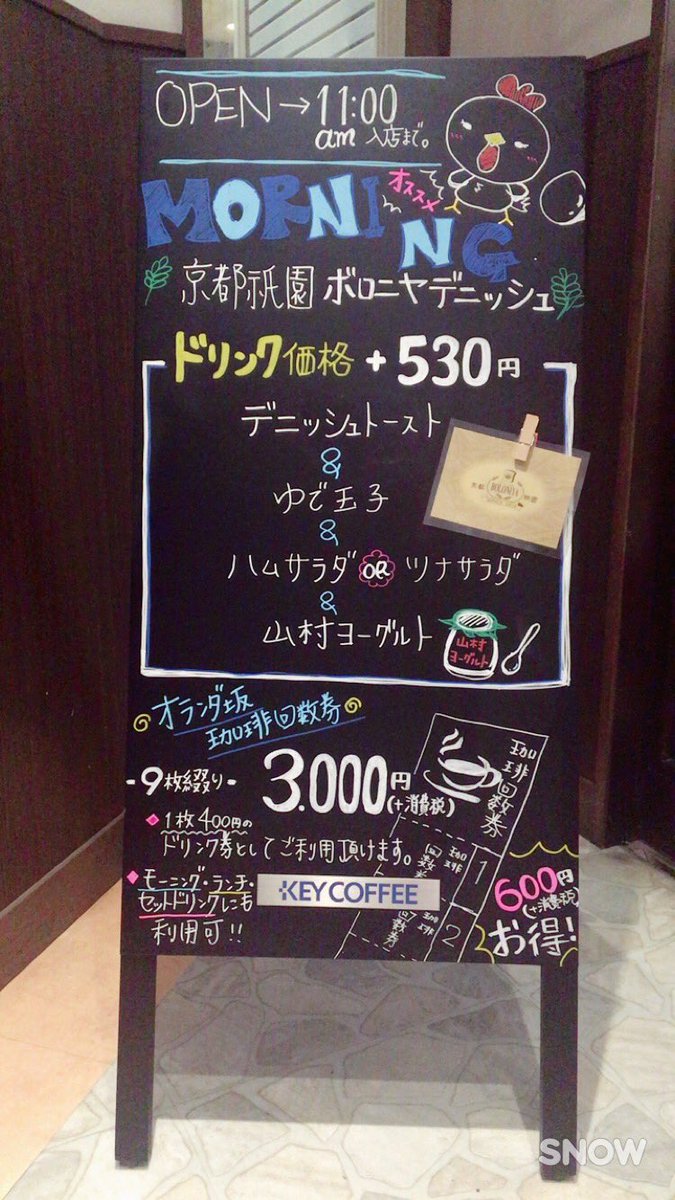 OPEN→11:00
am 入店まで。
オススメ
MORNING
京都祇園 ボロニヤデニッシュ
ドリンク価格 + 530円
デニッシュトースト
&
BOLONIYA
ゆで玉子
&
ハムサラダ OR ツナサラダ
&
山村ヨーグルト
山村
ヨーグルト
オランダ坂
珈琲回数券
-9枚綴り- 3.000円
(+消費税)
◆1枚400円の
ドリンク券としてご利用頂けます。
◆モーニング・ランチ・
セットドリンクにも
利用可!!
KEY COFFEE
珈琲回数券
珈琲回数券 1
珈琲回数券 2
600円
(+消費税)
お得!
SNOW